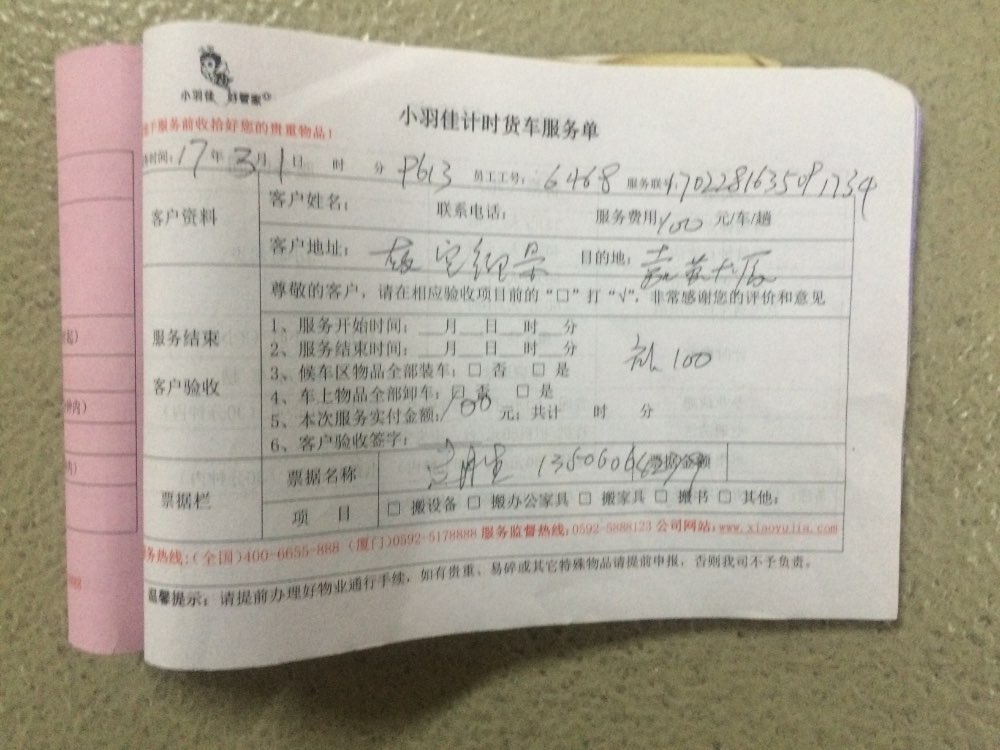 小羽佳 好管家
小羽佳计时货车服务单
服务前收拾好您的贵重物品！
时间：17年3月1日 时 分 P613 员工工号：6468 服务联
客户资料 客户姓名： 联系电话： 服务费用100元/车/趟
客户地址： 目的地：
尊敬的客户，请在相应验收项目前的“口”打“√”，非常感谢您的评价和意见
服务结束
客户验收
1、服务开始时间：__月__日__时__分
2、服务结束时间：__月__日__时__分
100
3、候车区物品全部装车：□ 否 □ 是
4、车上物品全部卸车：□ 否 □ 是
5、本次服务实付金额：100元；共计 时 分
6、客户验收签字：
票据栏 票据名称 票据金额
项 目 □ 搬设备 □ 搬办公家具 □ 搬家具 □ 搬书 □ 其他：
务热线：（全国）400-6655-888（厦门）0592-5178888 服务监督热线：0592-5888123 公司网站：www.xiaoyujia.com
温馨提示：请提前办理好物业通行手续，如有贵重、易碎或其它特殊物品请提前申报，否则我司不予负责。